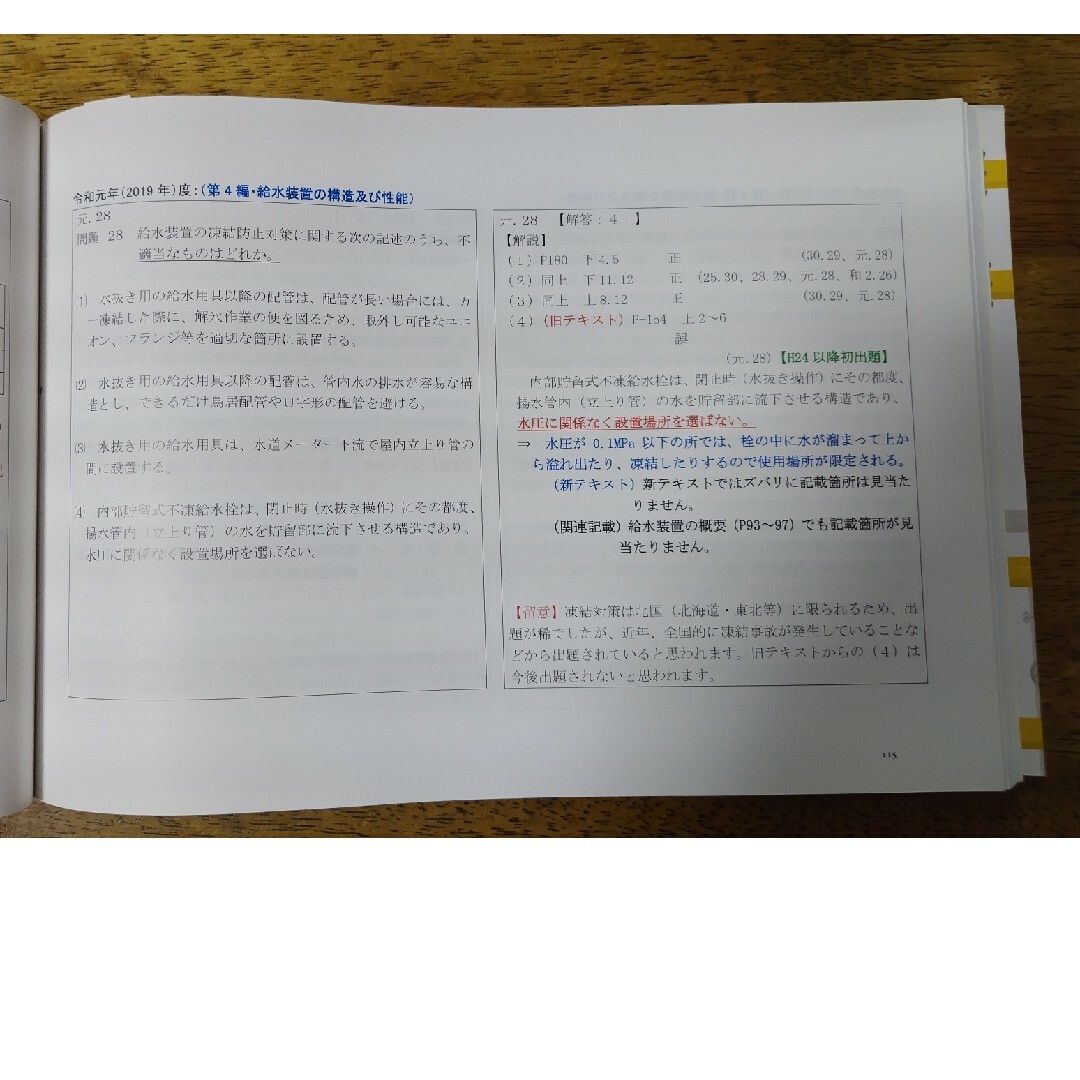 令和元年(2019 年)度:(第4編・給水装置の構造及び性能)
元.28
問題 28 給水装置の凍結防止対策に関する次の記述のうち、不
適当なものはどれか。
(1) 水抜き用の給水用具以降の配管は、配管が長い場合には、万
一凍結した際に、解氷作業の便を図るため、取外し可能なユニ
オン、フランジ等を適切な箇所に設置する。
(2) 水抜き用の給水用具以降の配管は、管内水の排水が容易な構
造とし、できるだけ鳥居配管やU字形の配管を避ける。
(3) 水抜き用の給水用具は、水道メーター下流で屋内立上り管の
間に設置する。
(4) 内部貯留式不凍給水栓は、閉止時(水抜き操作)にその都度、
揚水管内(立上り管)の水を貯留部に流下させる構造であり、
水圧に関係なく設置場所を選ばない。
元.28 【解答:4 】
【解説】
(1)P180 下4.5 正 (30.29、元.28)
(2)同上 下11.12 正 (25.30、28.29、元.28、和2.26)
(3)同上 上8.12 正 (30.29、元.28)
(4)(旧テキスト)P-154 上2~6
誤
(元.28)【H24以降初出題】
内部貯留式不凍給水栓は、閉止時(水抜き操作)にその都度、
揚水管内(立上り管)の水を貯留部に流下させる構造であり、
水圧に関係なく設置場所を選ばない。
⇒ 水圧が 0.1MPa 以下の所では、栓の中に水が溜まって上か
ら溢れ出たり、凍結したりするので使用場所が限定される。
(新テキスト)新テキストではズバリに記載箇所は見当た
りません。
(関連記載)給水装置の概要(P93~97)でも記載箇所が見
当たりません。
【留意】凍結対策は北国(北海道・東北等)に限られるため、出
題が稀でしたが、近年、全国的に凍結事故が発生していることな
どから出題されていると思われます。旧テキストからの(4)は
今後出題されないと思われます。
115